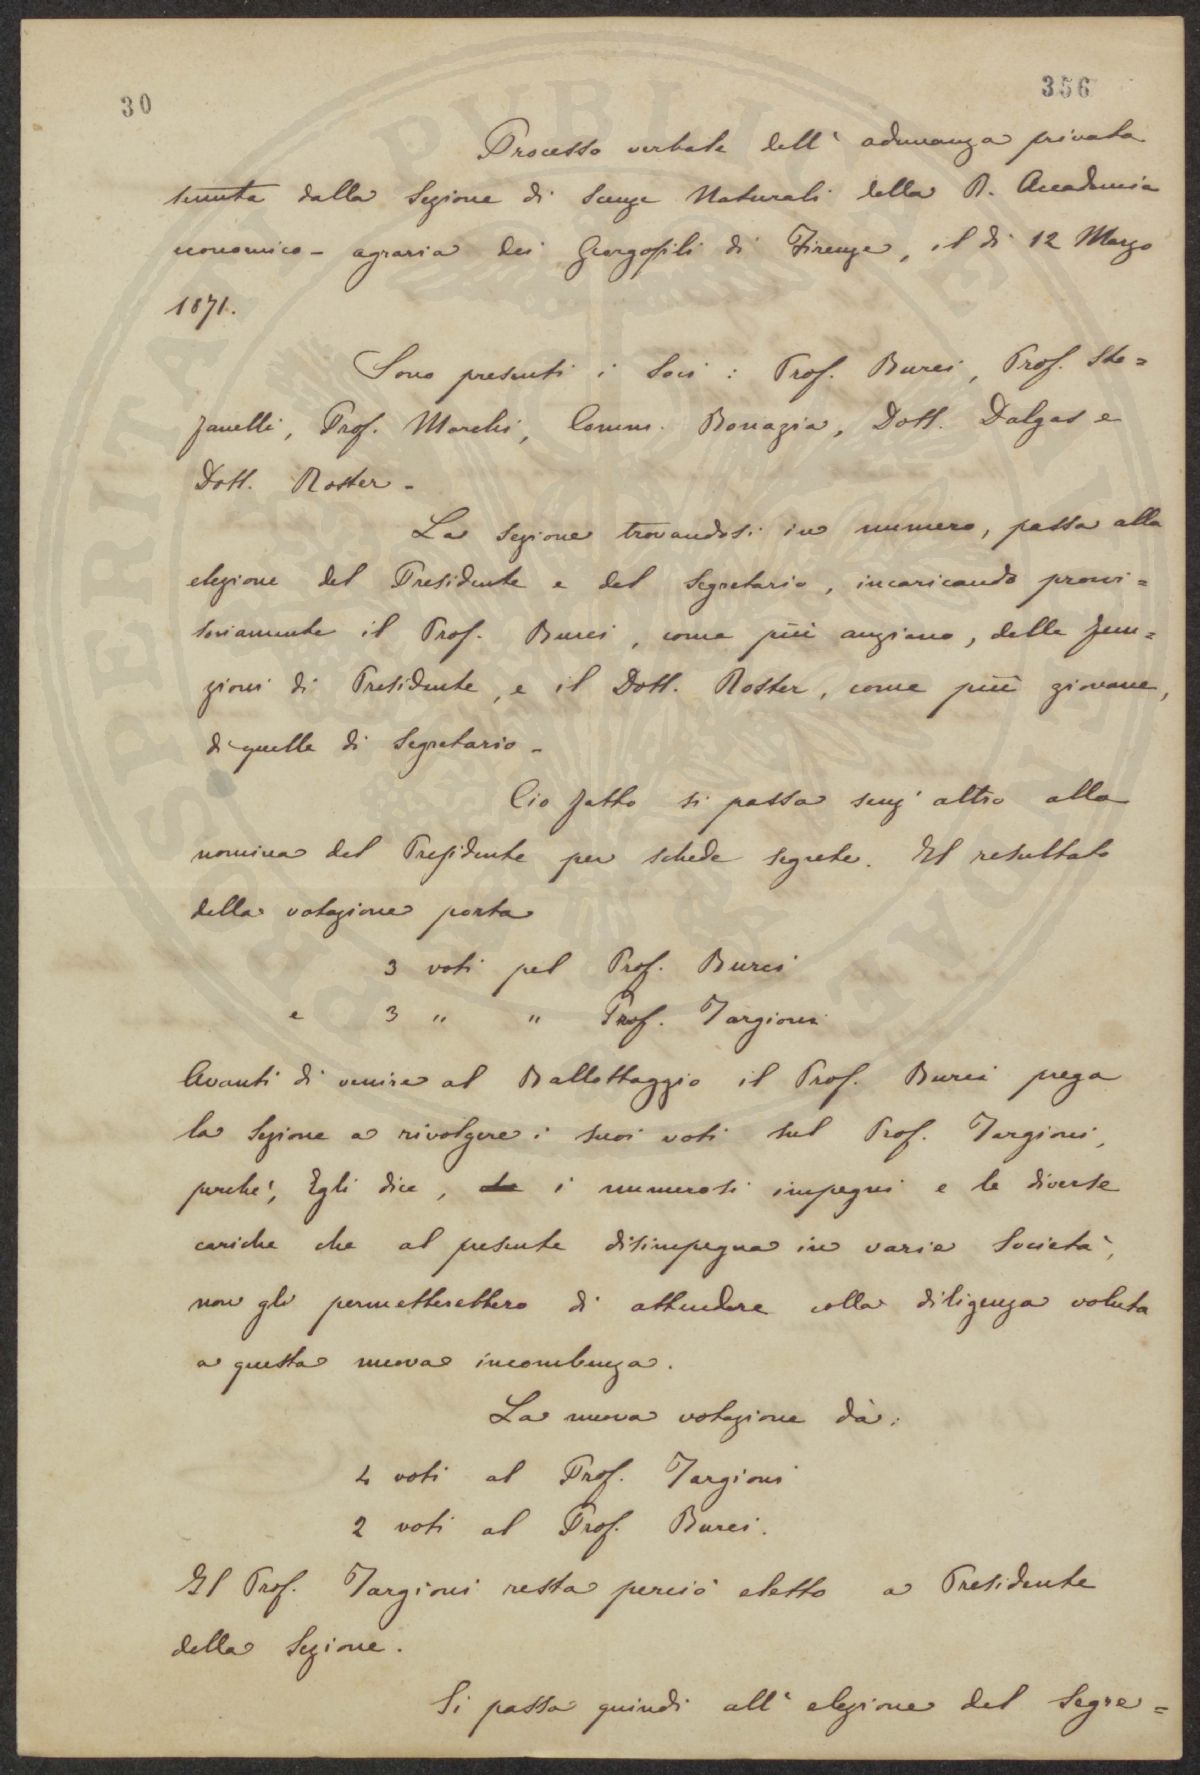 30
356
Processo verbale dell' adunanza privata
tenuta dalla Sezione di Scenze Naturali della R. Accademia
economico-agraria dei Georgofili di Firenze, il di 12 Marzo
1871.
Sono presenti i Soci: Prof. Burci, Prof. Ste=
fanelli, Prof. Marchi, Comm. Bonazia, Dott. Dalgas e
Dott. Roster -
La Sezione trovandosi in numero, passa alla
elezione del Presidente e del Segretario, incaricando provi=
soriamente il Prof. Burci, come più anziano, delle fun=
zioni di Presidente, e il Dott. Roster, come più giovane,
di quelle di Segretario -
Cio fatto si passa senz' altro alla
nomina del Presidente per schede segrete. Il resultato
della votazione porta
3 voti pel Prof. Burci
e 3 " " Prof. Targioni
Avanti di venire al Ballottaggio il Prof. Burci prega
la Sezione a rivolgere i suoi voti sul Prof. Targioni,
perchè, Egli dice, i numerosi impegni e le diverse
cariche che al presente disimpegna in varie Società,
non gli permetterebbero di attendere colla diligenza voluta
a questa nuova incombenza.
La nuova votazione dà:
4 voti al Prof. Targioni
2 voti al Prof. Burci.
Il Prof. Targioni resta perciò eletto a Presidente
della Sezione.
Si passa quindi all' elezione del Segre=